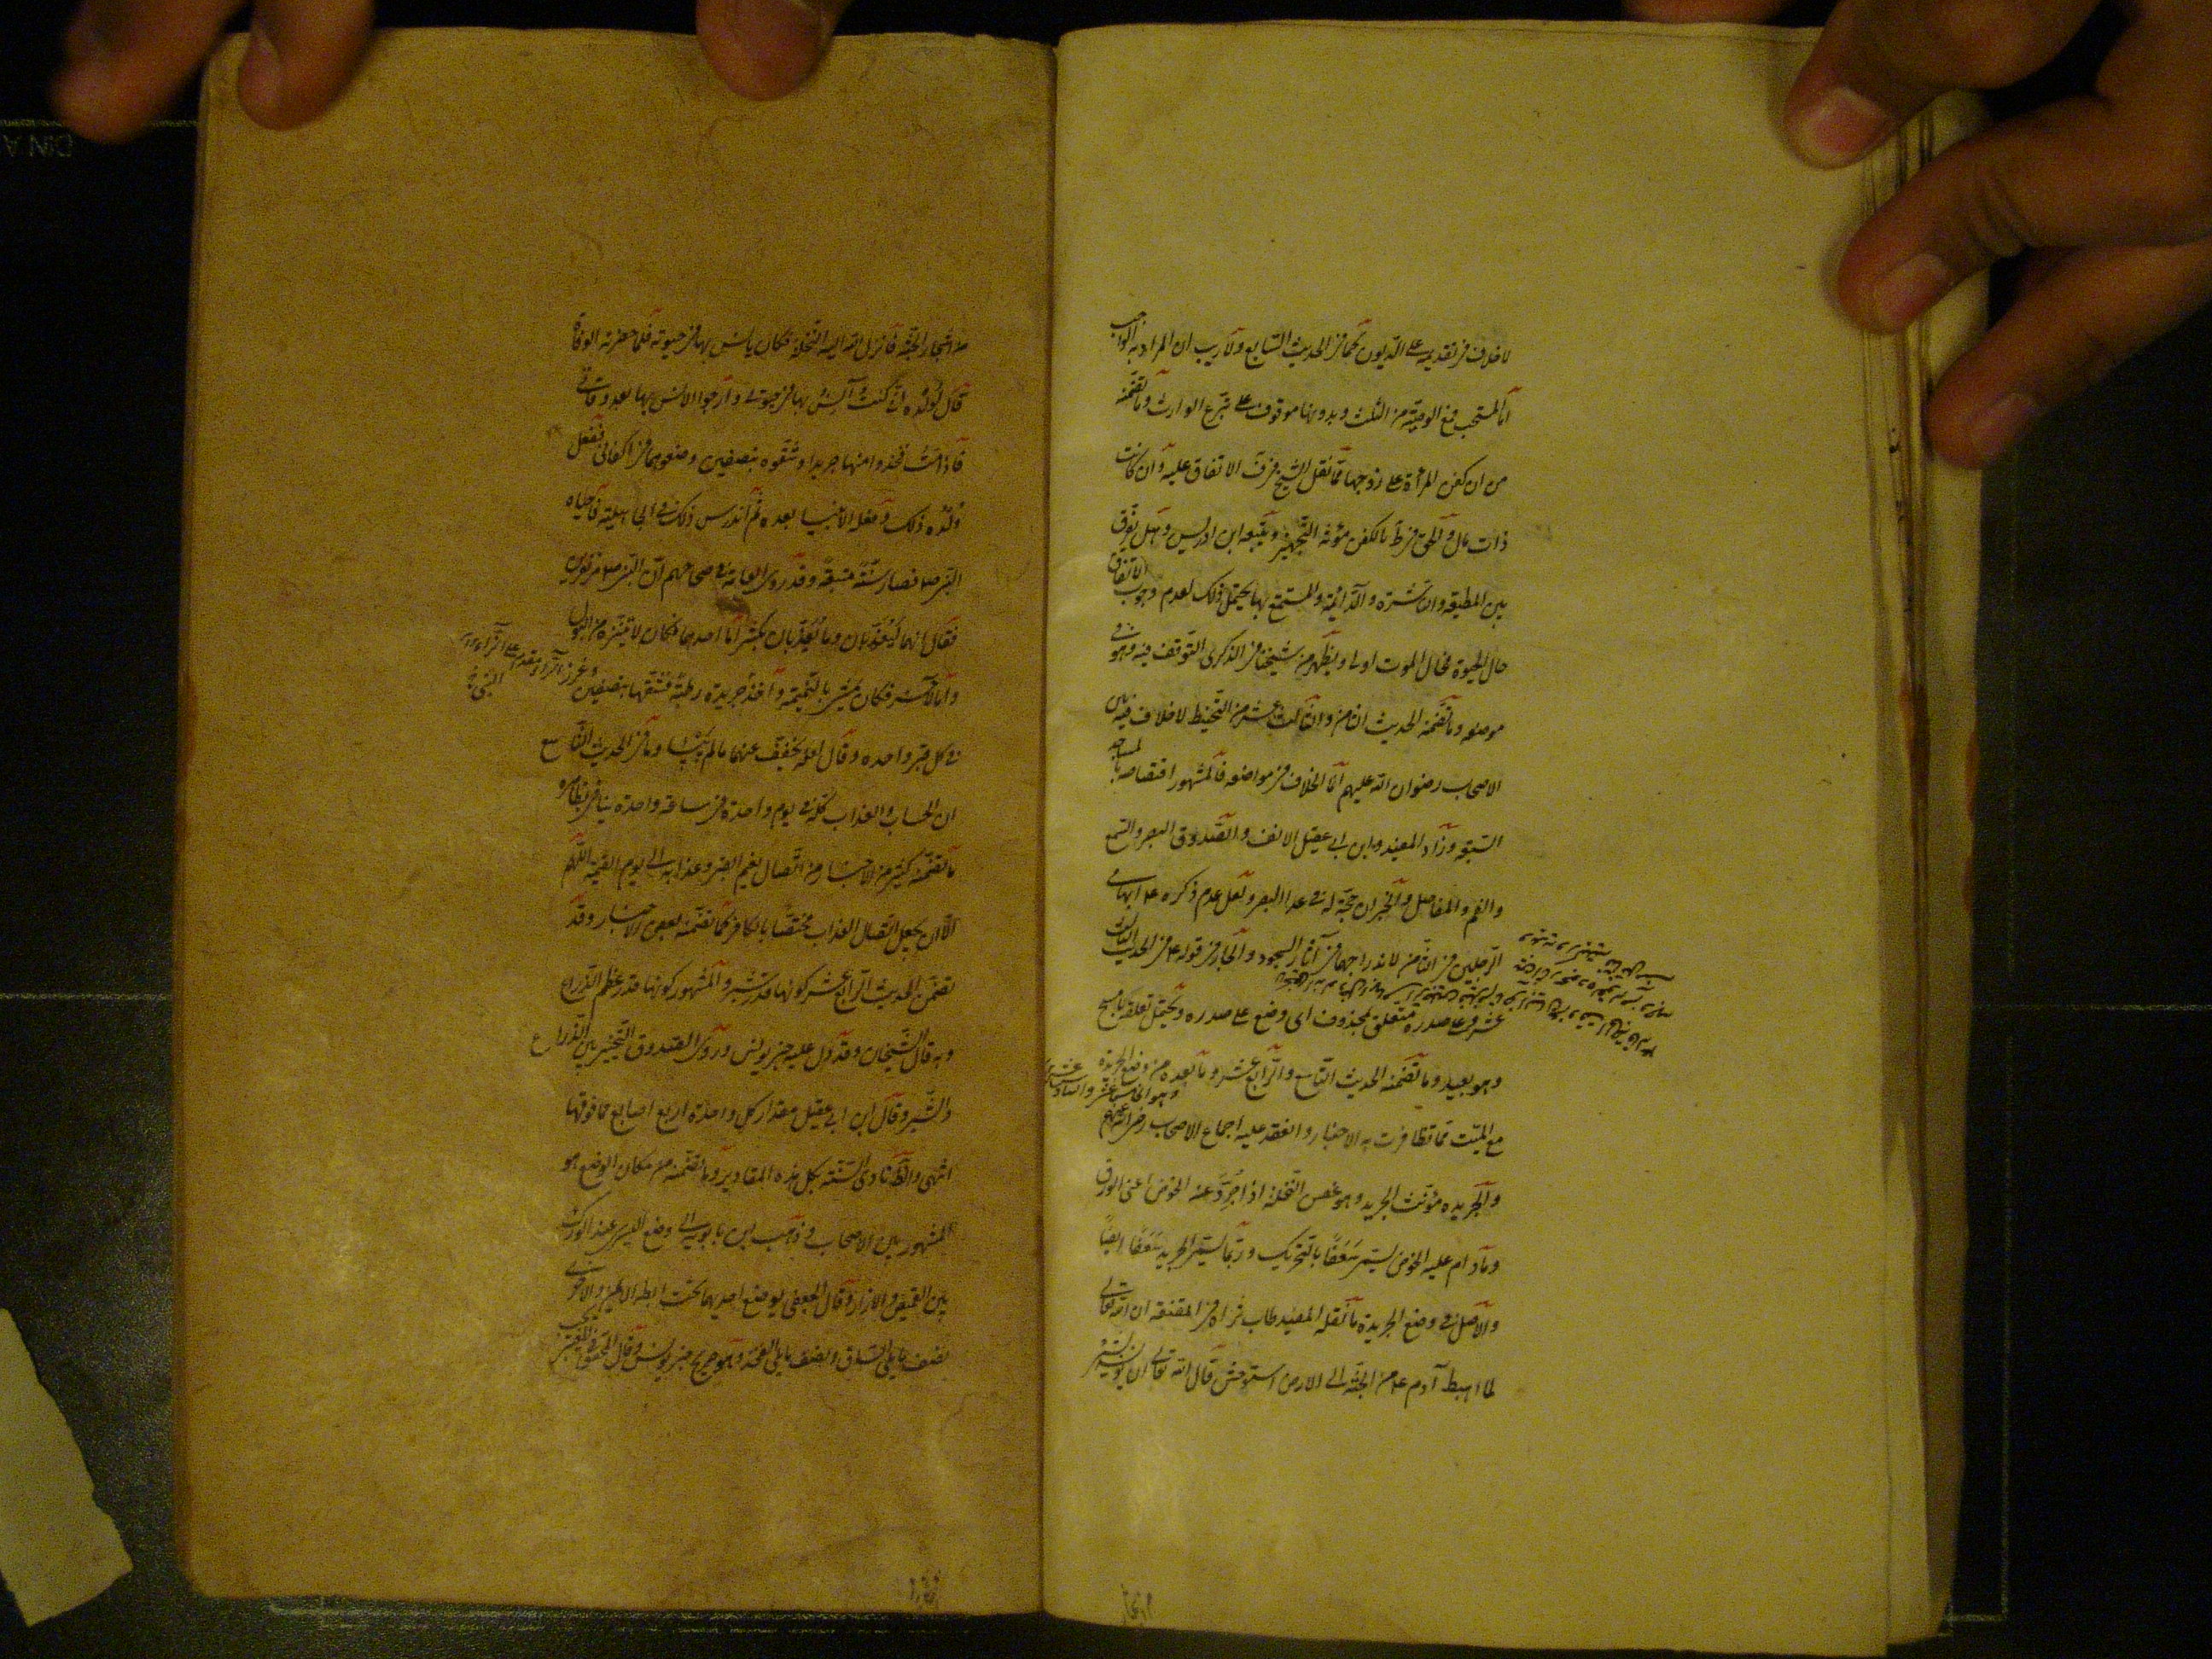 لا خلاف في تقديمه على الديون كما في الحديث السابع ولا ريب ان المراد به الواجب
اما المستحب فمع الوصية من الثلث وبدونها موقوف على تبرع الوارث وما تضمنه
من ان كفن المرأة على زوجها مما نقل الشيخ في ف الاتفاق عليه وان كانت
ذات مال والحق في ط بالكفن مؤنة التجهيز وتبعه ابن ادريس وهل يفرق
بين المطيعة والناشزة والدائمة والمستمتع بها يحتمل ذلك لعدم وجوب الانفاق
حال الحيوة فحال الموت اولى ويظهر من شيخنا في الذكرى التوقف فيه وهو في
موضعه وما تضمنه الحديث الثامن والثالث عشر من التحنيط لا خلاف فيه بين
الاصحاب رضوان الله عليهم انما الخلاف في مواضعه فالمشهور اختصاصه بالمساجد
السبعة وزاد المفيد وابن ابي عقيل الانف والصدوق البصر والسمع
والفم والمفاصل والخبران حجة له في عدا البصر ولعل عدم ذكره ع ابهامي
الرجلين في الثامن لاندراجها في آثار السجود والجار في قوله ع في الحديث الثالث
عشر وعلى صدره متعلق بمحذوف اى وضع على صدره ويحتمل تعلقه بامسح
وهو بعيد وما تضمنه الحديث التاسع والرابع عشر وما بعده من وضع الجريدة
وهو الخامس عشر والسادس عشر
مع الميت مما تظافرت به الاخبار وانعقد عليه اجماع الاصحاب رضي الله عنهم
والجريده مؤنث الجريد وهو غصن النخلة اذا جرد عنه الخوص اعنى الورق
وما دام عليه الخوص يسمى سعفا بالتحريك وربما يسمى الجريد سعفا ايضا
والاصل في وضع الجريدة ما نقله المفيد طاب ثراه في المقنعة ان الله تعالى
لما اهبط آدم ع من الجنة الى الارض استوحش فسال الله تعالى ان يونسه بشئ
من اشجار الجنة فانزل الله اليه النخلة فكان يانس بها في حيوته فلما حضرته الوفاة
قال لولده انى كنت آنس بها في حيوتى وارجوا الانس بها بعد وفاتى
فاذا مت فخذوا منها جريدا وشقوه بنصفين وضعوهما في اكفانى ففعل
ولده ذلك وفعله الانبيا بعده ثم اندرس ذلك في الجاهلية فاحياه
النبي ص فصار سنة متبعة وقد روى العامة في صحاحهم ان النبي ص مر بقبرين
فقال انهما ليعذبان وما يعذبان بكبير اما احدهما فكان لا يتنزه من البول
واما الآخر فكان يمشي بالنميمة واخذ جريدة رطبة فشقها بنصفين وغرز
في كل قبر واحده وقال لعله يخفف عنهما ما لم ييبسا وما في الحديث التاسع
ان الحساب والعذاب كله في يوم واحد في ساعة واحدة ينافي بظاهره
ما تضمنه كثير من الاخبار من اتصال نعيم القبر وعذابه الى يوم القيمة اللهم
الا ان يجعل اتصال العذاب مختصا بالكافر كما تضمنه بعض الاخبار وقد
تضمن الحديث الرابع عشر كونها قدر شبر والمشهور كونها قدر عظم الذراع
وبه قال الشيخان وقد دل عليه خبر يونس وروى الصدوق التخيير بين الذراع
والشبر وقال ابن ابي عقيل مقدار كل واحدة اربع اصابع فما فوقها
انتهى والظ تادى السنة بكل هذه المقادير وما تضمنه من مكان الوضع هو
المشهور بين الاصحاب وذهب ابن بابويه الى وضع اليسرى عند الورك
بين القميص والازار وقال الجعفي يوضع احديهما تحت ابطه الايمن والاخرى
نصف مما يلي الساق ونصف مما يلي الفخذ وهو صريح خبر يونس وقال المحقق في المعتبر